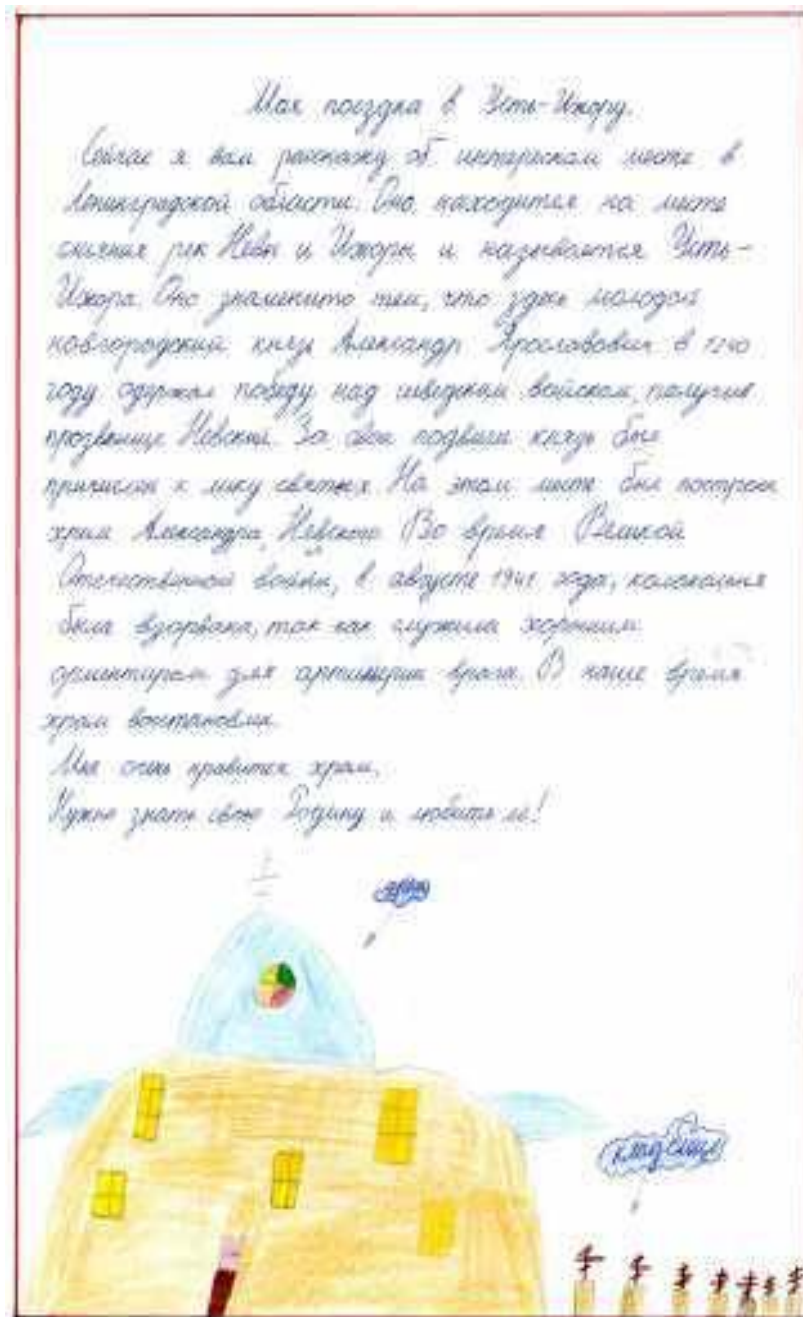 Моя поездка в Усть-Ижору.
Сейчас я вам расскажу об интересном месте в
Ленинградской области. Оно находится на месте
слияния рек Невы и Ижоры и называется Усть-
Ижора. Оно знаменито тем, что здесь молодой
новгородский князь Александр Ярославович в 1240
году одержал победу над шведским войском, получив
прозвище Невский. За свои подвиги князь был
причислен к лику святых. На этом месте был построен
храм Александра Невского. Во время Великой
Отечественной войны, в августе 1941 года, колокольня
была взорвана, так как служила хорошим
ориентиром для артиллерии врага. В наше время
храм востановлен
Мне очень нравится храм.
Нужно знать свою Родину и любить её!
храм
кладбище